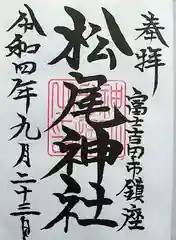 奉拝
富士吉田市鎮座
松尾神社
令和四年九月二十三日